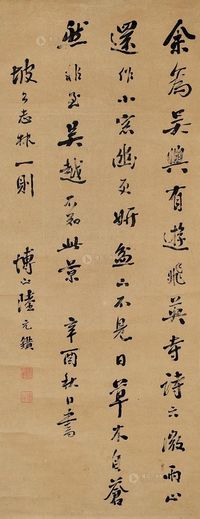 余為吳興有遊飛英寺詩云微雨止
還作小窓幽更妍盆山不見日草木自蒼
然非至吳越不知此景 辛酉秋日書
坡公志林一則 博山陸元